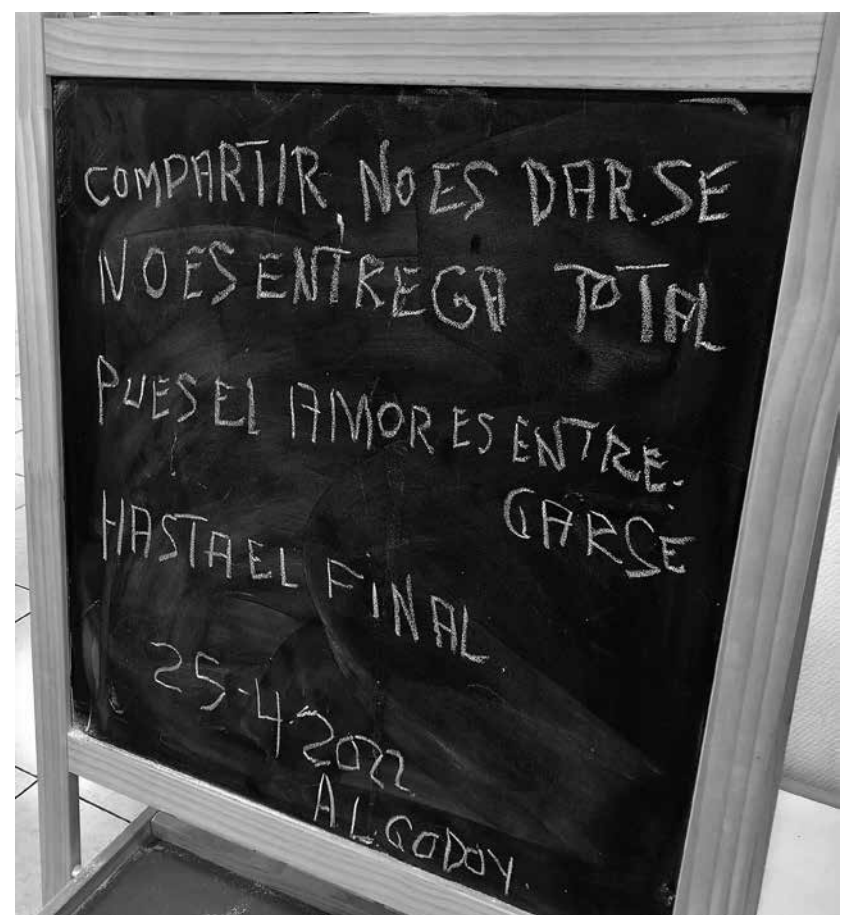 COMPARTIR, NO ES DARSE
NO ES ENTREGA TOTAL
PUES EL AMOR ES ENTRE-
GARSE
HASTA EL FINAL.
25-4-2022
A.L.GODOY.